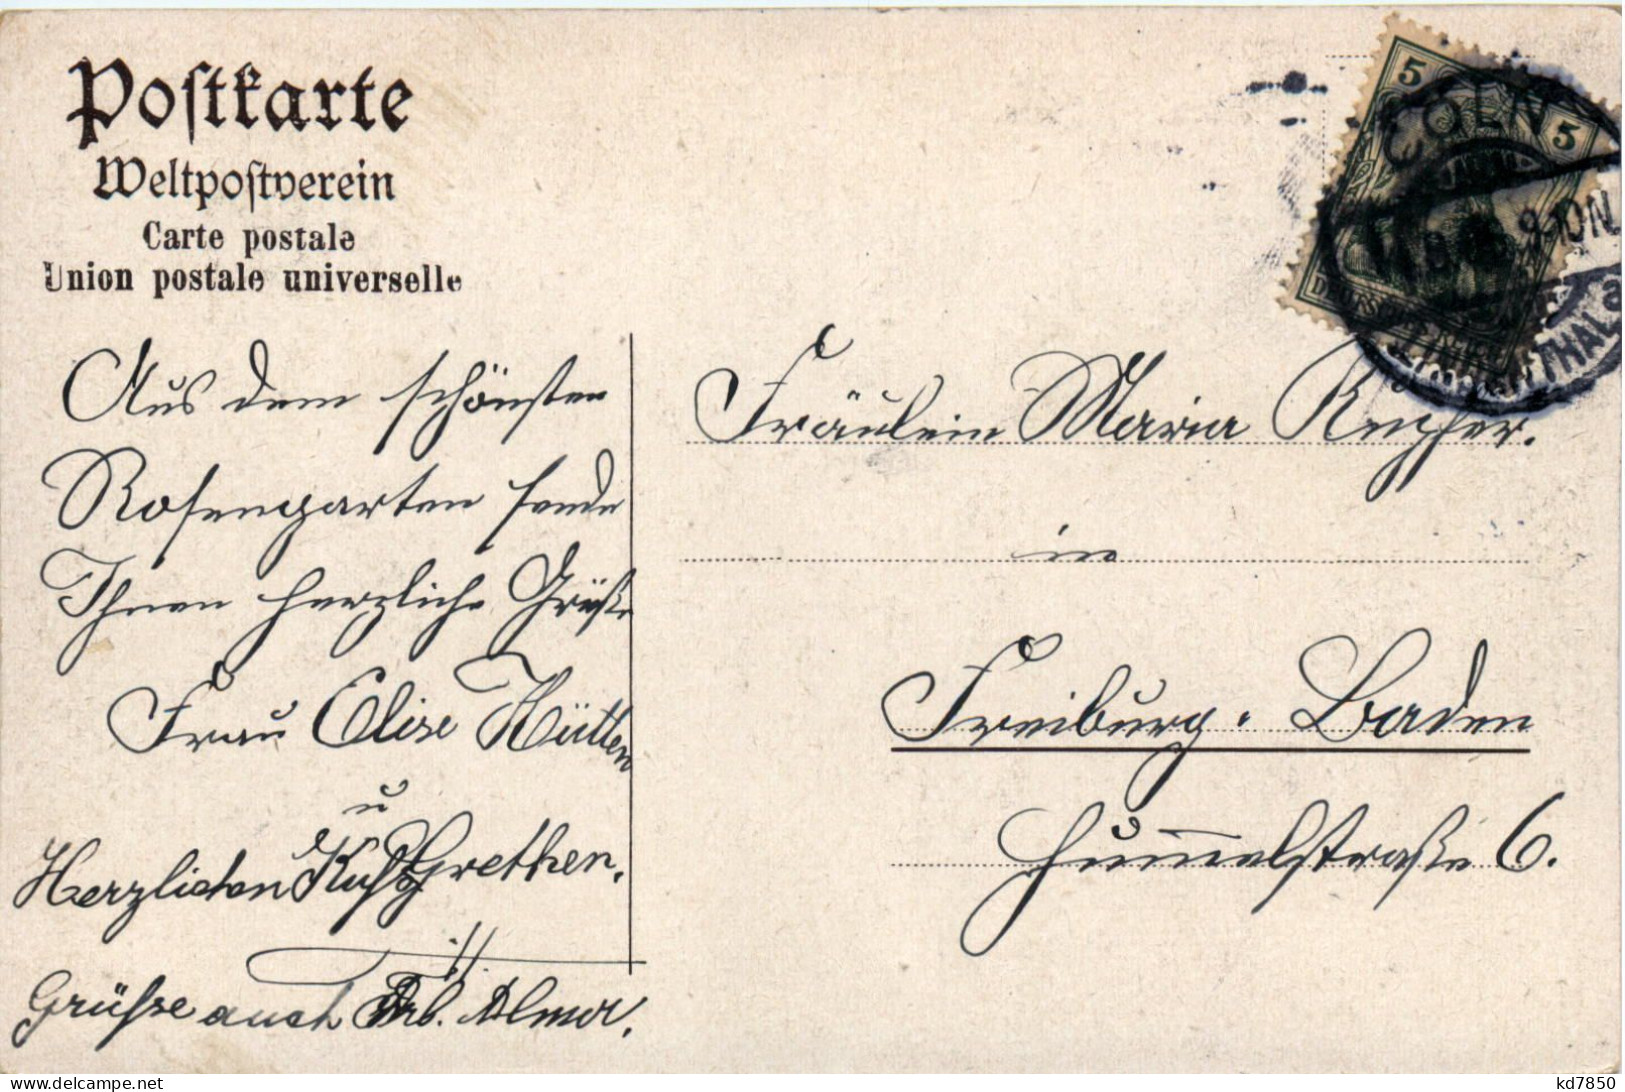 Postkarte
Weltpostverein
Carte postale
Union postale universelle
Aus dem schönsten
Rosengarten sende
Ihnen herzliche Grüße
Frau Elise Hütten
u
Herzlichen Kuß Grethen.
Grüße auch Frl.
5
5
CÖLN
9-10N
THAL
DEUTSCHES REICH
Fräulein Maria
in
Freiburg. Baden
Hummelstraße 6.
kd7850